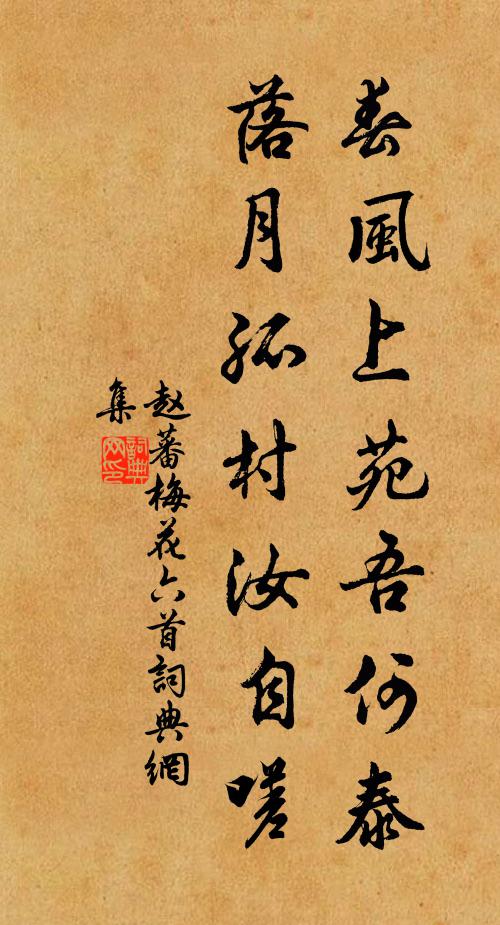 春風上苑吾何泰
落月孤村汝自嗟
赵蕃梅花六首詞典網
集
詞典网印